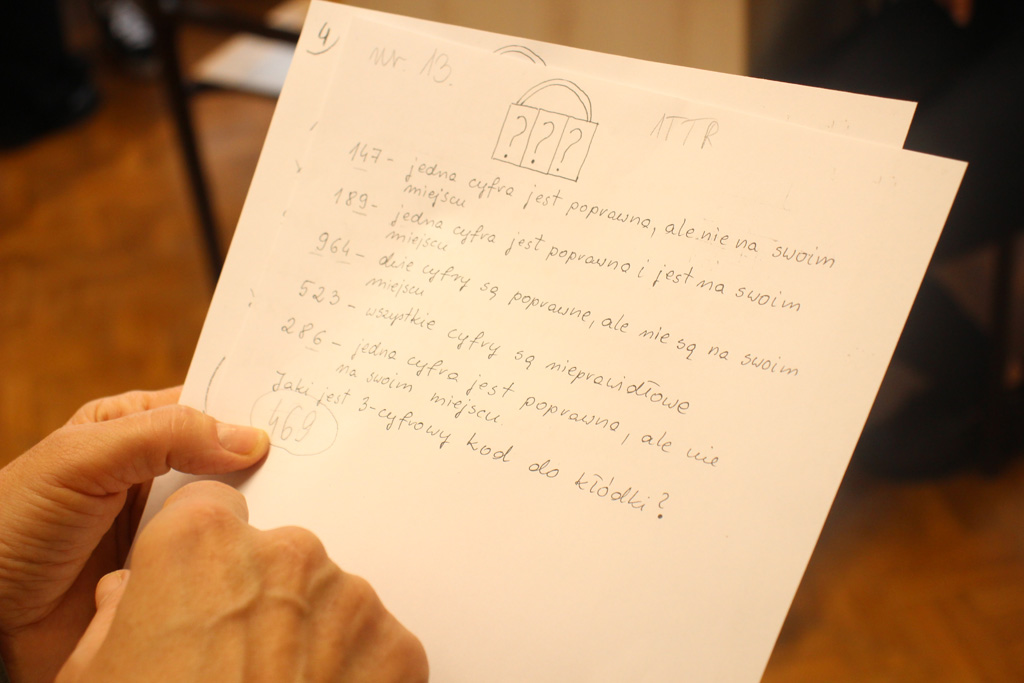 4
nr. 13.
? ? ?
1TTR
147 - jedna cyfra jest poprawna, ale nie na swoim
miejscu
189 - jedna cyfra jest poprawna i jest na swoim
miejscu
964 - dwie cyfry są poprawne, ale nie są na swoim
miejscu
523 - wszystkie cyfry są nieprawidłowe
286 - jedna cyfra jest poprawna, ale nie
na swoim miejscu.
Jaki jest 3-cyfrowy kod do kłódki?
469